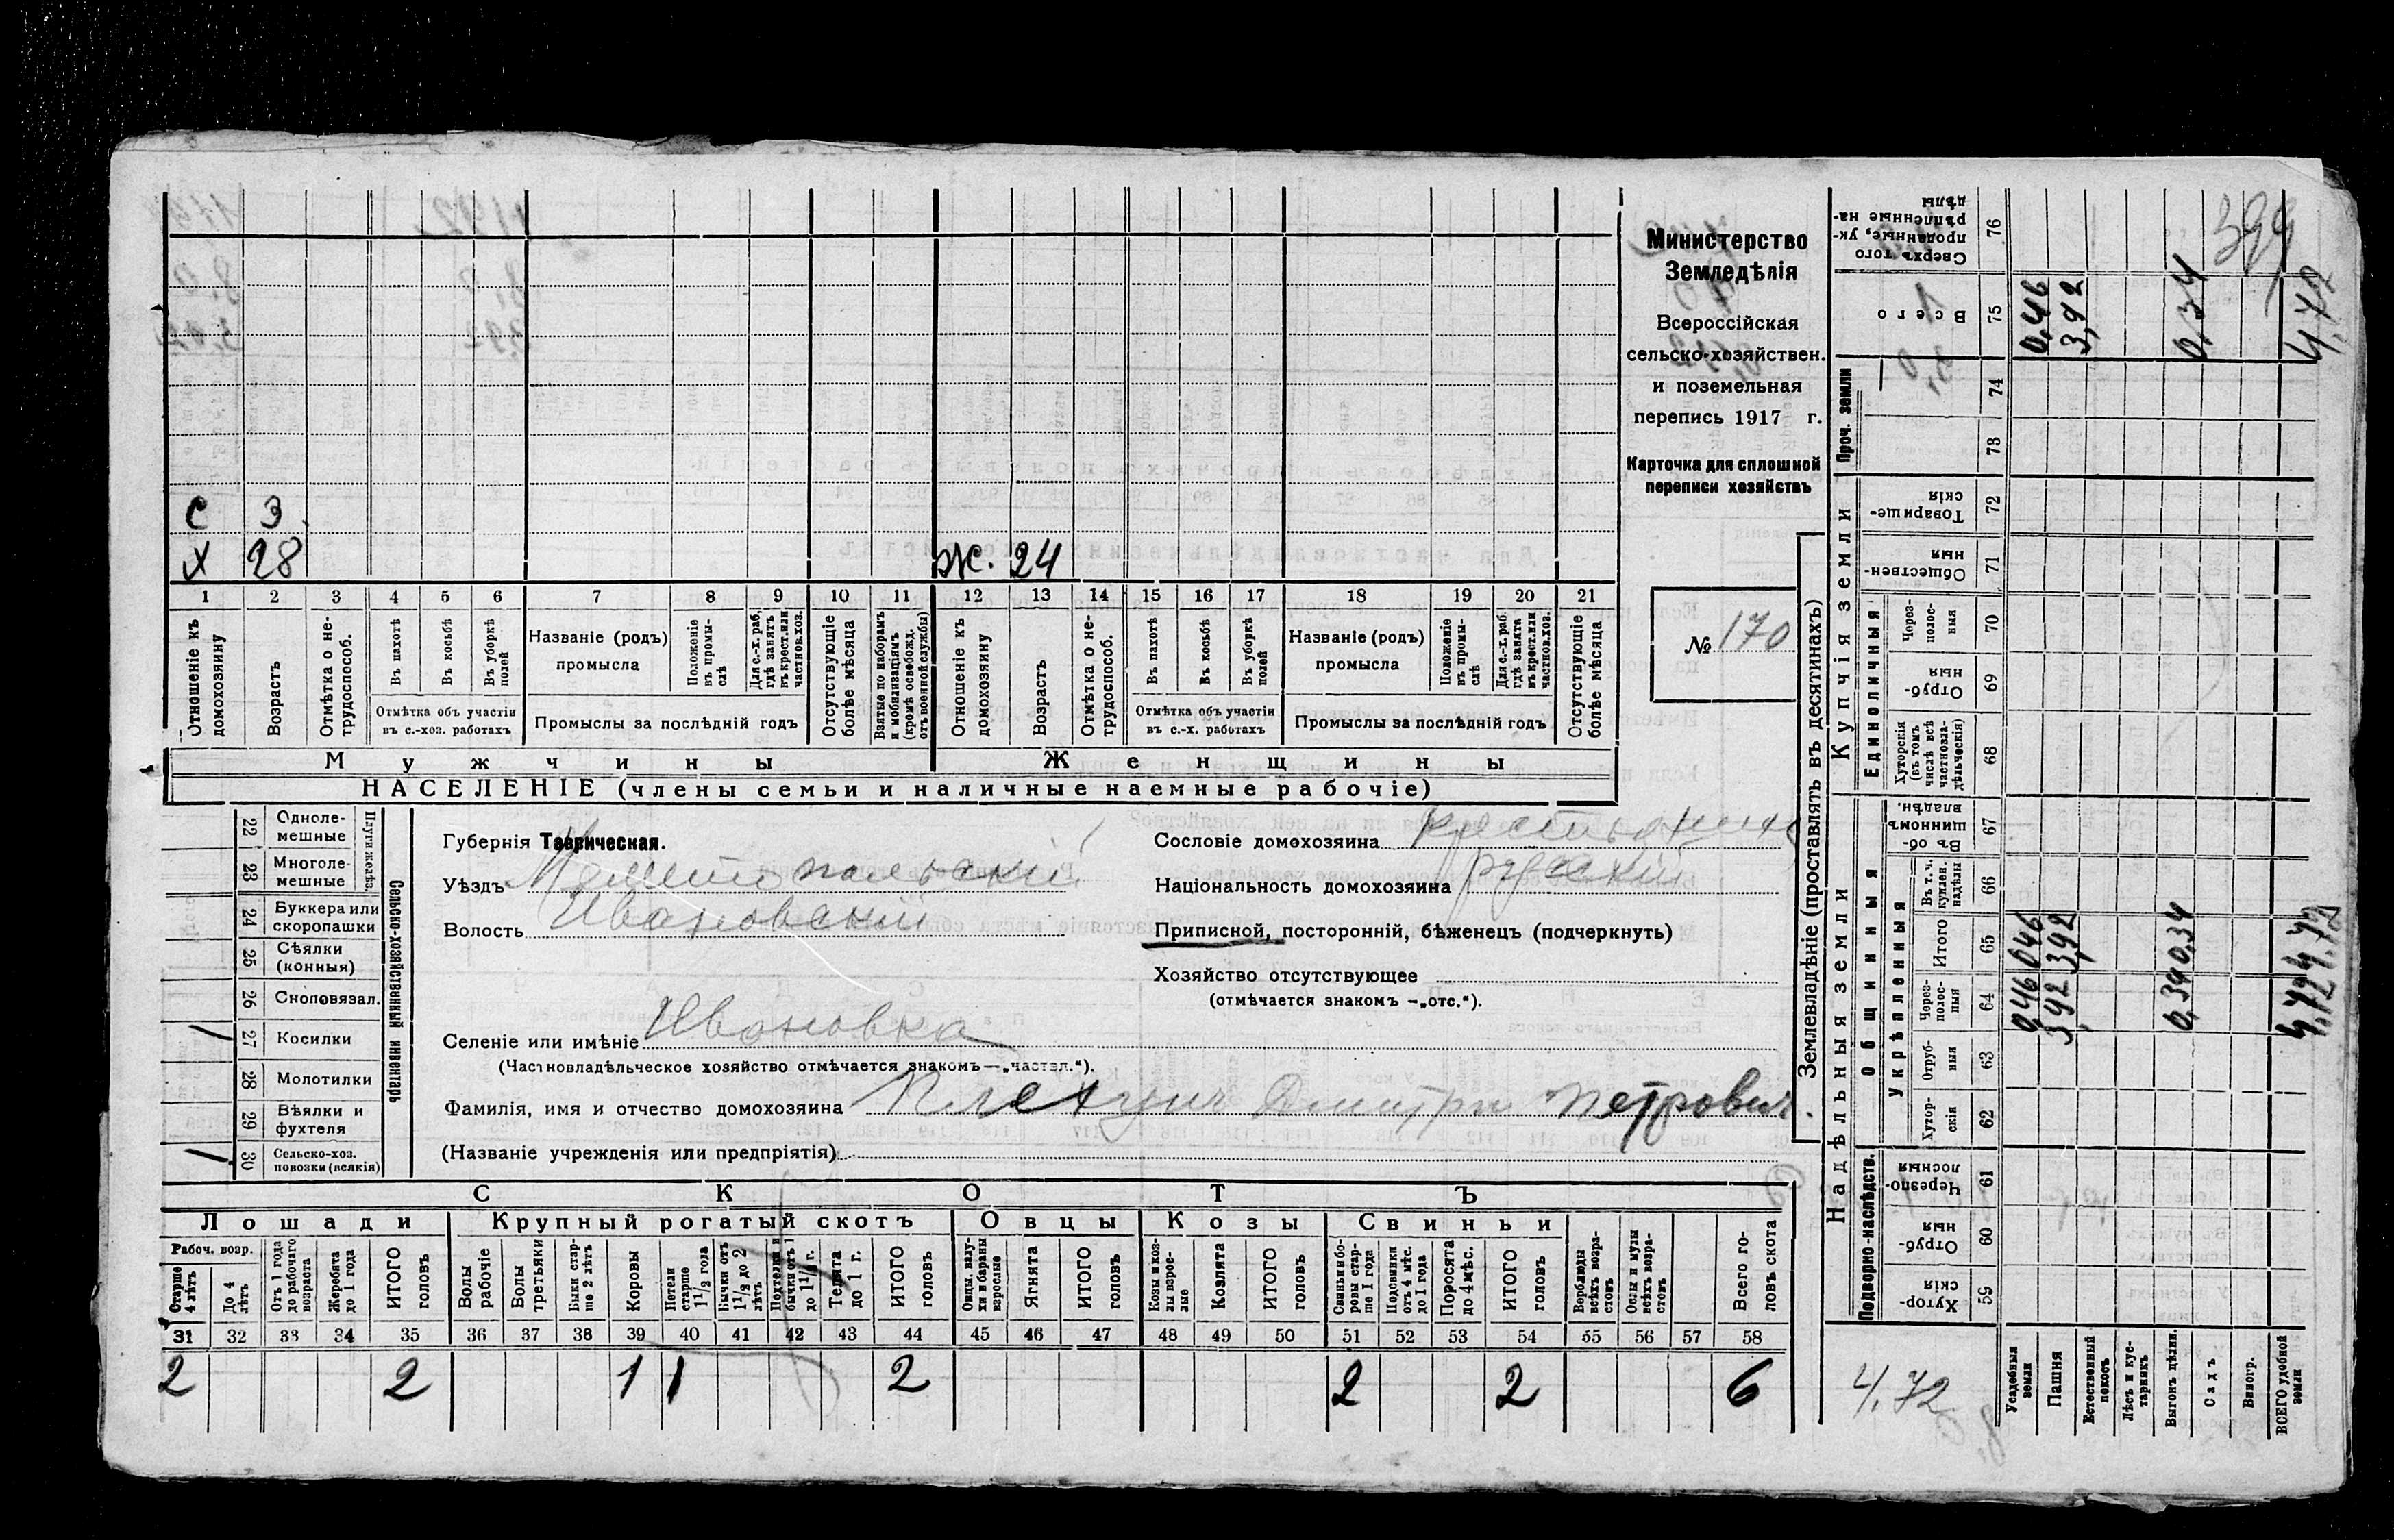 С 3
Х 28 Ж. 24
1 2 3 4 5 6 7 8 9 10 11 12 13 14 15 16 17 18 19 20 21
Отношеніе къ домохозяину
Возрастъ
Отмѣтка о нетрудоспособ.
Въ пахотѣ
Въ косьбѣ
Въ уборкѣ полей
Отмѣтка объ участіи
въ с.-хоз. работахъ
Названіе (родъ)
промысла
Положеніе въ промыслѣ
Для с.-х. раб. гдѣ занятъ въ крест. или частнов. хоз.
Промыслы за послѣдній годъ
Отсутствующіе болѣе мѣсяца
Взятые по наборамъ и мобилизаціямъ (кромѣ освобожд. отъ военной службы)
Отношеніе къ домохозяину
Возрастъ
Отмѣтка о нетрудоспособ.
Въ пахотѣ
Въ косьбѣ
Въ уборкѣ полей
Отмѣтка объ участіи
въ с.-х. работахъ
Названіе (родъ)
промысла
Положеніе въ промыслѣ
Для с.-х. раб. гдѣ занята въ крест. или частнов. хоз.
Промыслы за послѣдній годъ
Отсутствующіе болѣе мѣсяца
Мужчины Женщины
НАСЕЛЕНІЕ (члены семьи и наличные наемные рабочіе)
Министерство
Земледѣлія
Всероссійская
сельско-хозяйствен.
и поземельная
перепись 1917 г.
Карточка для сплошной
переписи хозяйствъ
№ 170
22 Одноле-
мешные
23 Многоле-
мешные
Плуги желѣз.
24 Буккера или
скоропашки
25 Сѣялки
(конныя)
26 Сноповязал.
1 27 Косилки
28 Молотилки
29 Вѣялки и
фухтеля
1 30 Сельско-хоз.
повозки (всякія)
Сельско-хозяйственный инвентарь
Губернія Таврическая.
Уѣздъ Мелитопольскій
Волость Ивановскій
Селеніе или имѣніе Ивановка
(Частновладѣльческое хозяйство отмѣчается знакомъ—„частвл.“).
Фамилія, имя и отчество домохозяина Дмитри Петрович.
(Названіе учрежденія или предпріятія)
Сословіе домохозяина крестьянин
Національность домохозяина русскій
Приписной, посторонній, бѣженецъ (подчеркнуть)
Хозяйство отсутствующее
(отмѣчается знакомъ —„отс.“).
СКОТЪ
Лошади Крупный рогатый скотъ Овцы Козы Свиньи
Рабоч. возр.
Старше 4 лѣтъ
До 4 лѣтъ
Отъ 1 года до рабочаго возраста
Жеребята до 1 года
ИТОГО головъ
Волы рабочіе
Волы третьяки
Быки старше 2 лѣтъ
Коровы
Нетели старше 1½ года
Бычки отъ 1½ до 2 лѣтъ
Подтелки и бычки отъ 1 до 1½ г.
Телята до 1 г.
ИТОГО головъ
Овцы, валухи и бараны взрослые
Ягнята
ИТОГО головъ
Козы и козлы взрослые
Козлята
ИТОГО головъ
Свиньи и боровы старше 1 года
Подсвинки отъ 4 мѣс. до 1 года
Поросята до 4 мѣс.
ИТОГО головъ
Верблюды всѣхъ возрастовъ
Ослы и мулы всѣхъ возрастовъ
Всего головъ скота
31 32 33 34 35 36 37 38 39 40 41 42 43 44 45 46 47 48 49 50 51 52 53 54 55 56 57 58
2 2 1 1 2 2 2 6
Землевладѣніе (проставлять въ десятинахъ)
Надѣльныя земли
Купчія земли
Проч. земли
Подворно-наслѣдств.
Общинныя
Укрѣпленныя
Единоличныя
Сверхъ того проданные, укрѣпленные надѣлы 76
Всего 75
74
73
Товарищескія 72
Общественныя 71
Черезполосныя 70
Отрубныя 69
Хуторскія (въ томъ числѣ всѣ частновладѣльческія) 68
Въ общинномъ владѣн. 67
Въ т. ч. куплен. надѣлы 66
Итого 65
Черезполосныя 64
Отрубныя 63
Хуторскія 62
Черезполосныя 61
Отрубныя 60
Хуторскія 59
Усадебныя земли
Пашня
Естественный покосъ
Лѣсъ и кустарникъ
Выгонъ цѣлин.
Садъ
Виногр.
ВСЕГО удобной земли
399
0,46 3,92 0,34 4,72
0,46 3,92 0,34 4,72
0,46 3,92 0,34 4,72
4,72